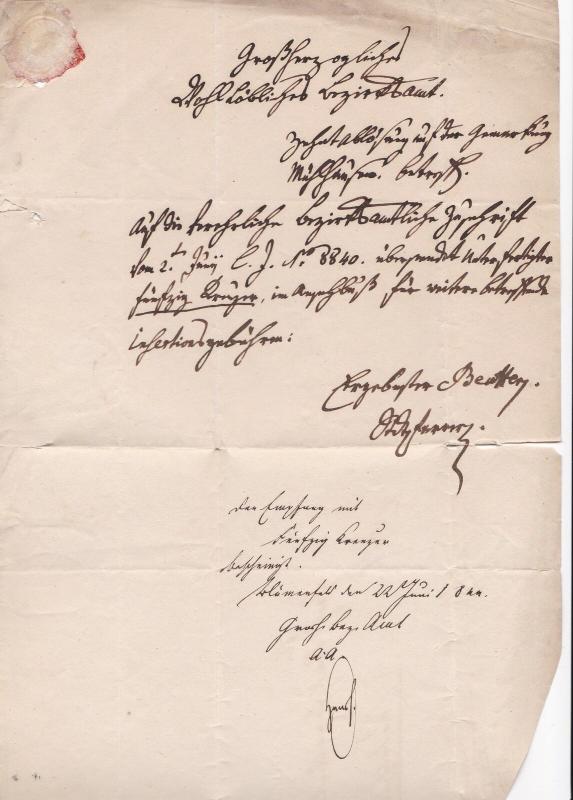 Großherzogliches
Wohllöbliches Bezirksamt.
Zehntablösung auf der Gemarkung
Mühlhausen. betreff.
Auf die verehrliche bezirksamtliche Zuschrift
vom 2.ten Juny l. J. No. 8840. übersendet Unterfertigter
fünfzig Kreuzer, im Anschluß für weitere betreffende
Insertionsgebühren:
Ergebenster
Stdtpfarrer.
Den Empfang mit
Fünfzig Kreuzer
bescheinigt.
Blumenfeld den 22 Juni 1844.
Großh. Bez. Amt
A. A.